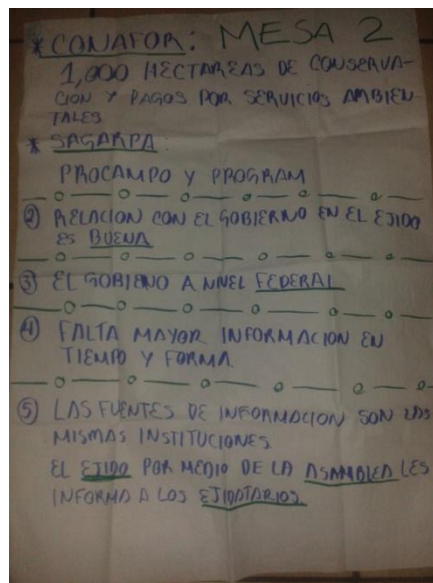 * CONAFOR: MESA 2
1,000 HECTAREAS DE CONSERVA-
CION Y PAGOS POR SERVICIOS AMBIEN-
TALES
* SAGARPA:
PROCAMPO Y PROGRAM
② RELACION CON EL GOBIERNO EN EL EJIDO
ES BUENA
③ EL GOBIENO A NIVEL FEDERAL
④ FALTA MAYOR INFORMACION EN
TIEMPO Y FORMA.
⑤ LAS FUENTES DE INFORMACION SON LAS
MISMAS INSTITUCIONES.
EL EJIDO POR MEDIO DE LA ASAMBLEA LES
INFORMA A LOS EJIDATARIOS